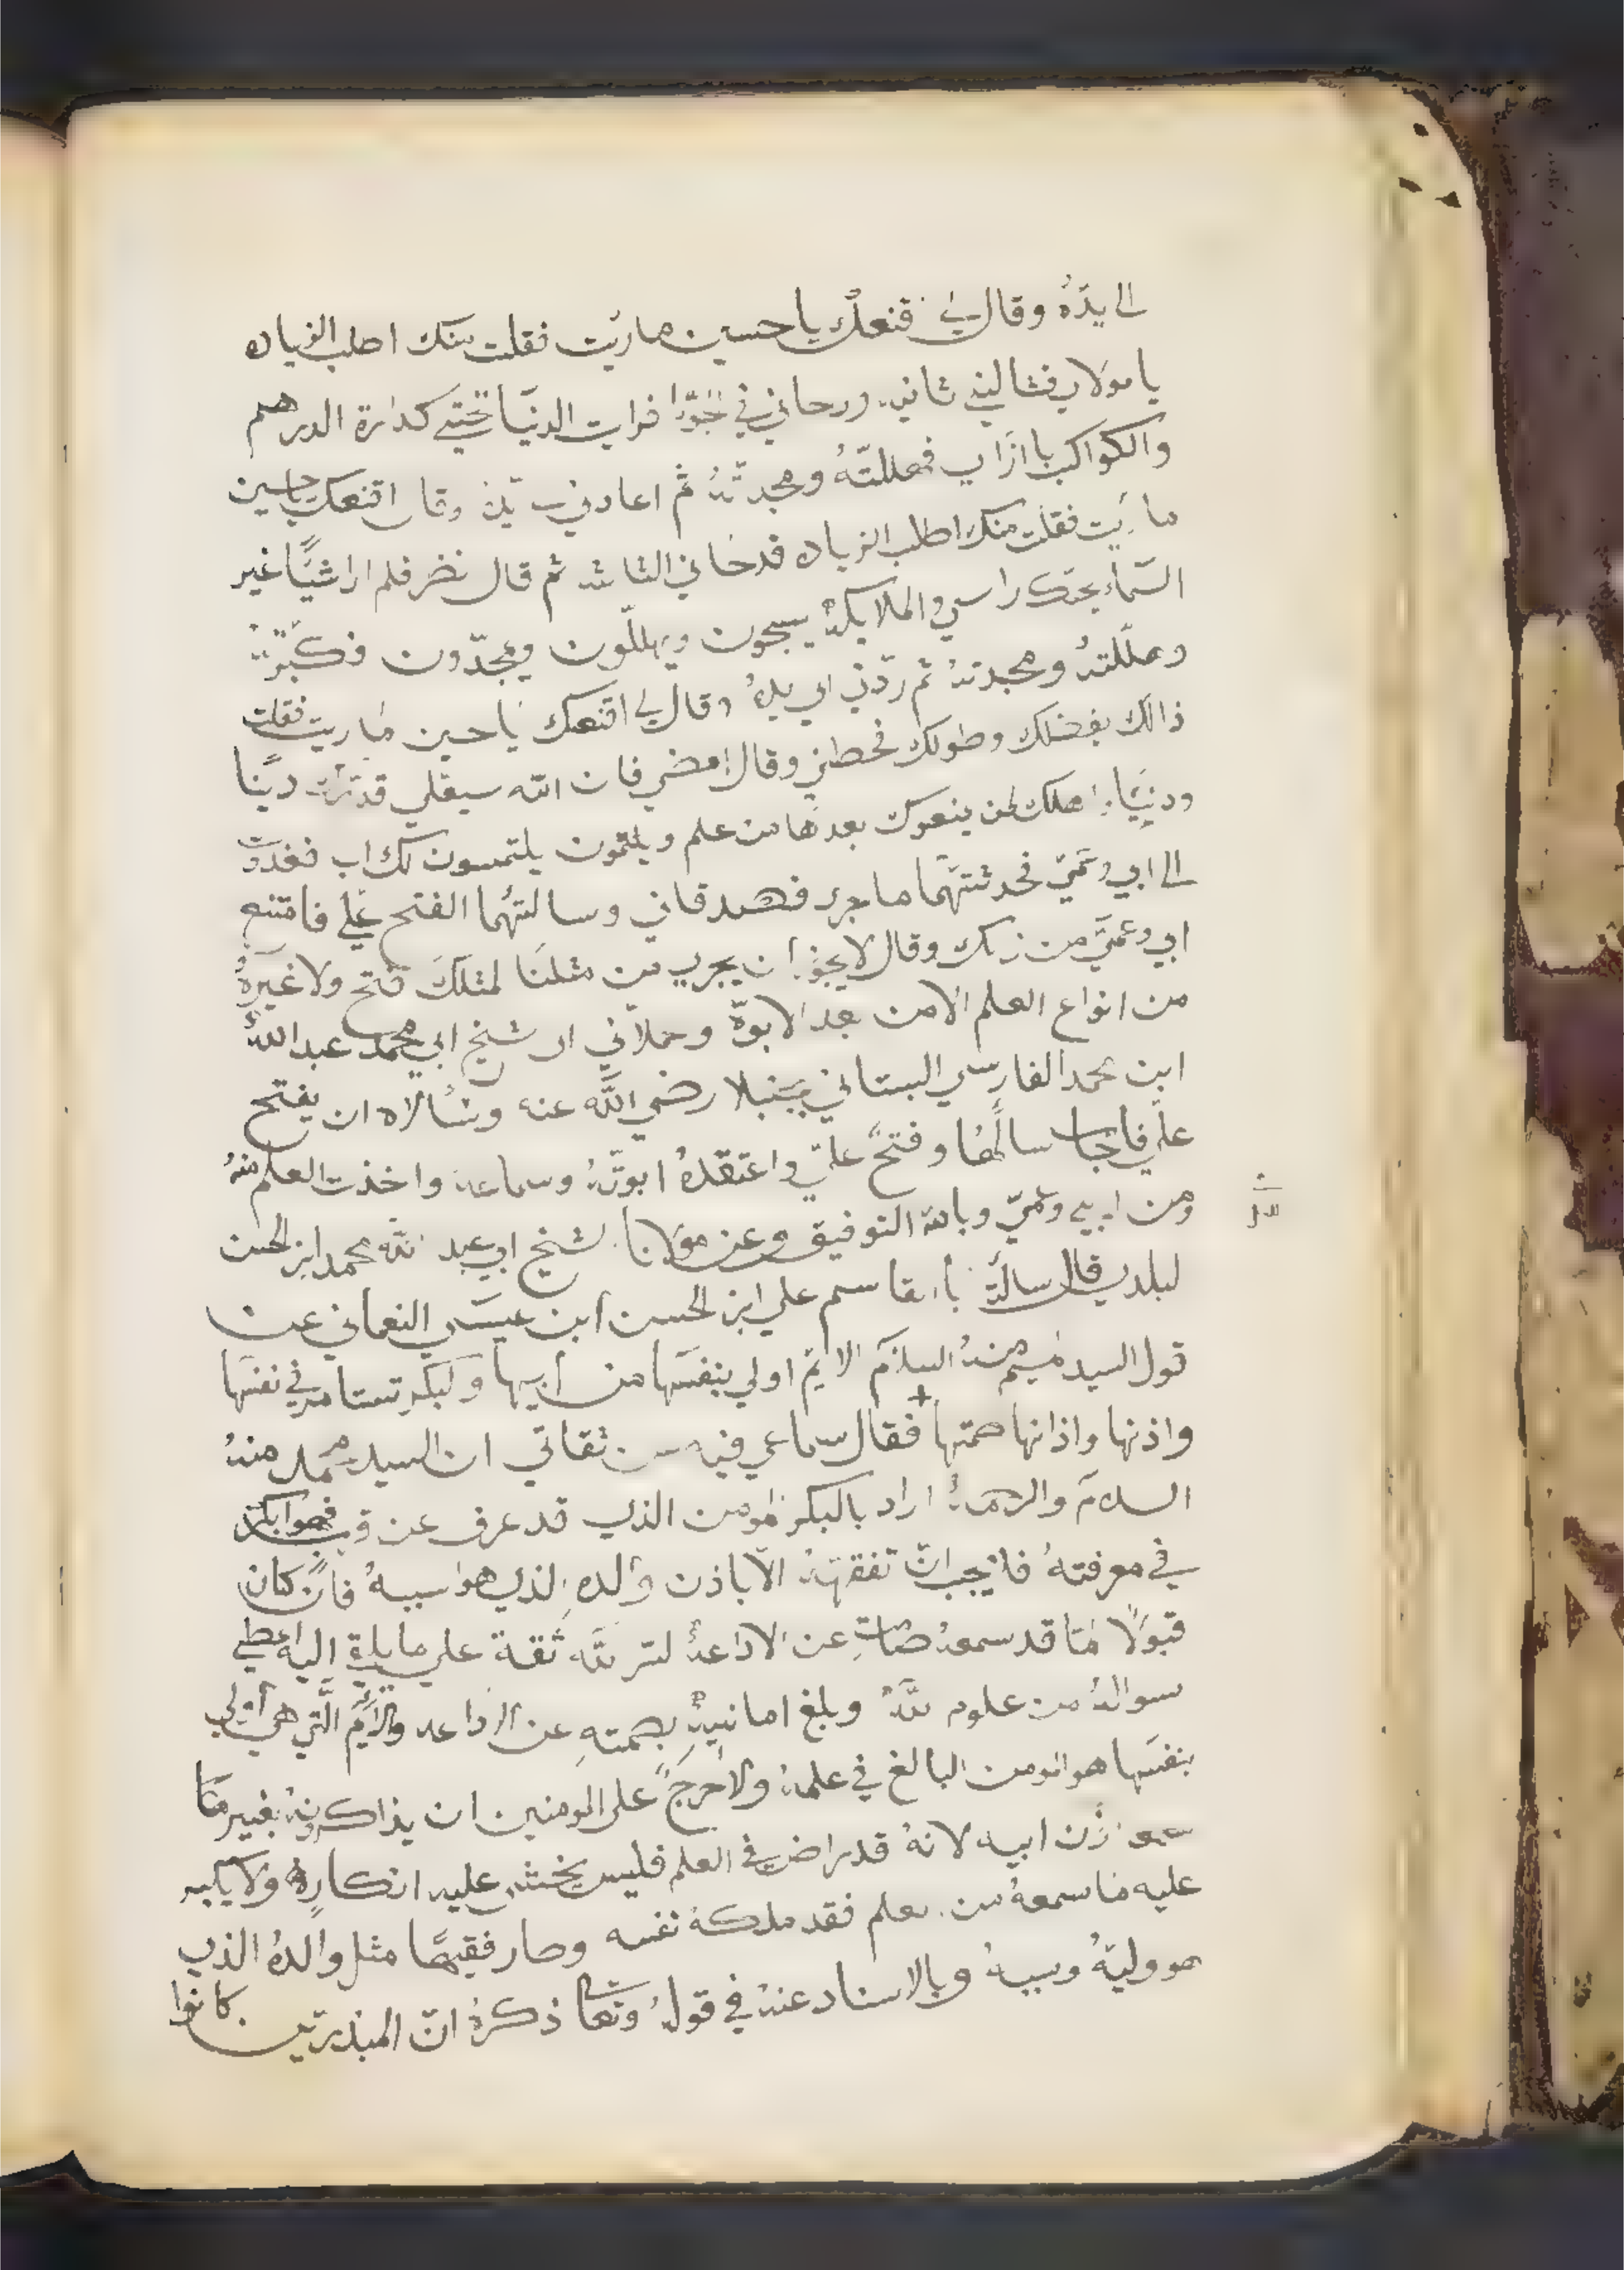 الى يدّهُ وقال لي قنعك ياحسين ماريت فقلت منك اطلب الزياده
يا مولاي فشالني ثانيه ورحاني في الجوّ افرايت الدنيا تحتي كدارة الدرهم
والكواكب باازاي فهللتهُ ومجدتهُ ثم اعادني وقال اقنعك ياحسين
ماريت فقلت منك اطلب الزياده فدحاني الثالثه ثم قال نضر فلم ارا شيًا غير
السّماء بحتك راسي والملايكهُ يسبحون ويهللّون ويمجدّون فكبّرتهُ
وهلّلتهُ ومجدتهُ ثم ردّني الى يدهُ وقال لي اقنعك ياحسين ماريت فقلت
ذالك بفضلك وطولك فحطني وقال امضي فان الله سيعلي قدرك دينًا
ودنيًا اهلك لمن يمنعوك بعدها من علم ويلتمسون لك اب فغدوت
الى ابي وعميّ فحدثتهما ماجرى فصدقاني وسالتهما الفتح عليّ فامتنع
ابي وعميّ من ذلك وقال لايجوز ان يجري من مثلنا لمثلك فتح ولاغيرهُ
من انواع العلم الامن بعد الابوّة وحملاني الى شيخ ابي محمد عبد اللهُ
ابن محمد الفارسي البستاني بجنبلا رضي الله عنه وسالاه ان يفتح
عليّ فاجاب سالهما وفتح عليّ واعتقدهُ ابوتهُ وسماعه واخذت العلم منهُ
ومن ابي وعميّ وبالله التوفيق وعن مولانا الشيخ ابي عبد الله محمد ابن الحسن
البلدي قال سالت باالقاسم علي ابن الحسن ابن عيسى النعماني عن
قول السيد ميم منهُ السلام الايّم اولي بنفسها من ابيها والبكر تستامر في نفسها
واذنها واذانها صمتها فقال سماعي فيه من ثقاتي ان السيد محمد منهُ
السلام والرحمهُ اراد بالبكر المومن الذي قد عرف عن قريب فهوا بكر
في معرفتهُ فلايجب ان تفقههُ الاّ باذن والده الذي هوا سببهُ فان كان
قبولاً لما قد سمعهُ صامت عن الاداعهُ لسر اللّه ثقة علي مايلقى اليه اعطي
سوالهُ من علوم اللّهُ وبلغ امانيهُ بصمتهِ عن الاداعه والايّم الّتي هي اولي
بنفسها هوالمومن البالغ في علمهُ ولاحرجً على المومنين ان يذاكرونهُ بغير ما
سمع من ابيه لانهُ قد راض في العلم فليس يخشى عليه انكارهُ ولايكبر
عليه ماسمعهُ من العلم فقد ملكهُ نفسه وصار فقيهًا مثل والدهُ الذي
هووليهُ وسببهُ وبالاسناد عنهُ في قولهُ وتعالى ذكرهُ انّ المبذرّين كانوا